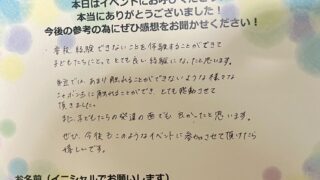 本日はイベントにお呼びくださり
本当にありがとうございました！
今後の参考の為にぜひ感想をお聞かせください！
・普段、経験できないことを体験することができて
子どもたちにとって とても良い経験になったと思います。
では、あまり触れることができないような様々な
に触れることができ、とても感動させて
頂きました。
また、子どもたちの発達の面でも良かったと思います。
ぜひ、今後もこのようなイベントに参加させて頂けたら
嬉しいです。
お名前（イニシャルでお願いします）